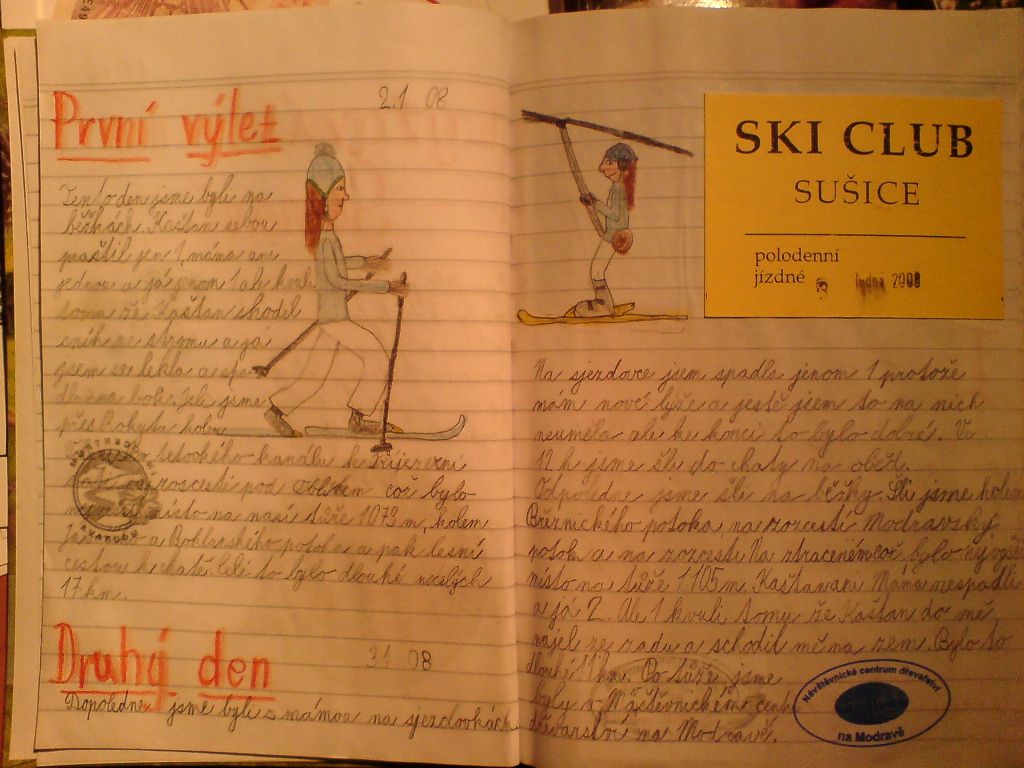 První výlet
2.1 08
Ten to den jsme byli na
běžkách. Kaštan sebou
praštil jen 1, máma ani
jednou a já jenom 1 ale kvuli
tomu že Kaštan shodil
sníh ze stromu a já
jsem se lekla a spa
dla na bok. Jeli jsme
přes Rokytu kolem
tetovského kanálu k Tříjezerní
rozcestí pod Oblíkem což bylo
místo na naší túře 1079 m, kolem
a Roklanského potoka a pak lesní
cestou k chatě. Celé to bylo dlouhé necelých
17 km.
Druhý den
3.1 08
Dopoledne jsme byli s mámou na sjezdovkách
SKI CLUB
SUŠICE
polodenní
jízdné
2008
Na sjezdovce jsem spadla jenom 1 protože
mám nové lyže a ještě jsem to na nich
neuměla ale ke konci to bylo dobré. Ve
12 h jsme šli do chaty na oběd.
Odpoledne jsme šli na běžky. Šli jsme kolem
Březnického potoka na rozcestí Modravský
potok a na rozcestí Na ztraceném což bylo nejvyšší
místo na túře 1105 m. Kaštan ani Máma nespadli
a já 2. Ale 1 kvuli tomu že Kaštan do mě
najel ze zadu a schodil mě na zem. Bylo to
dlouhé 11 km. Po túře jsme
byly v Návštěvnickém centru
dřevařství na Modravě.
Návštěvnické centrum dřevařství
na Modravě